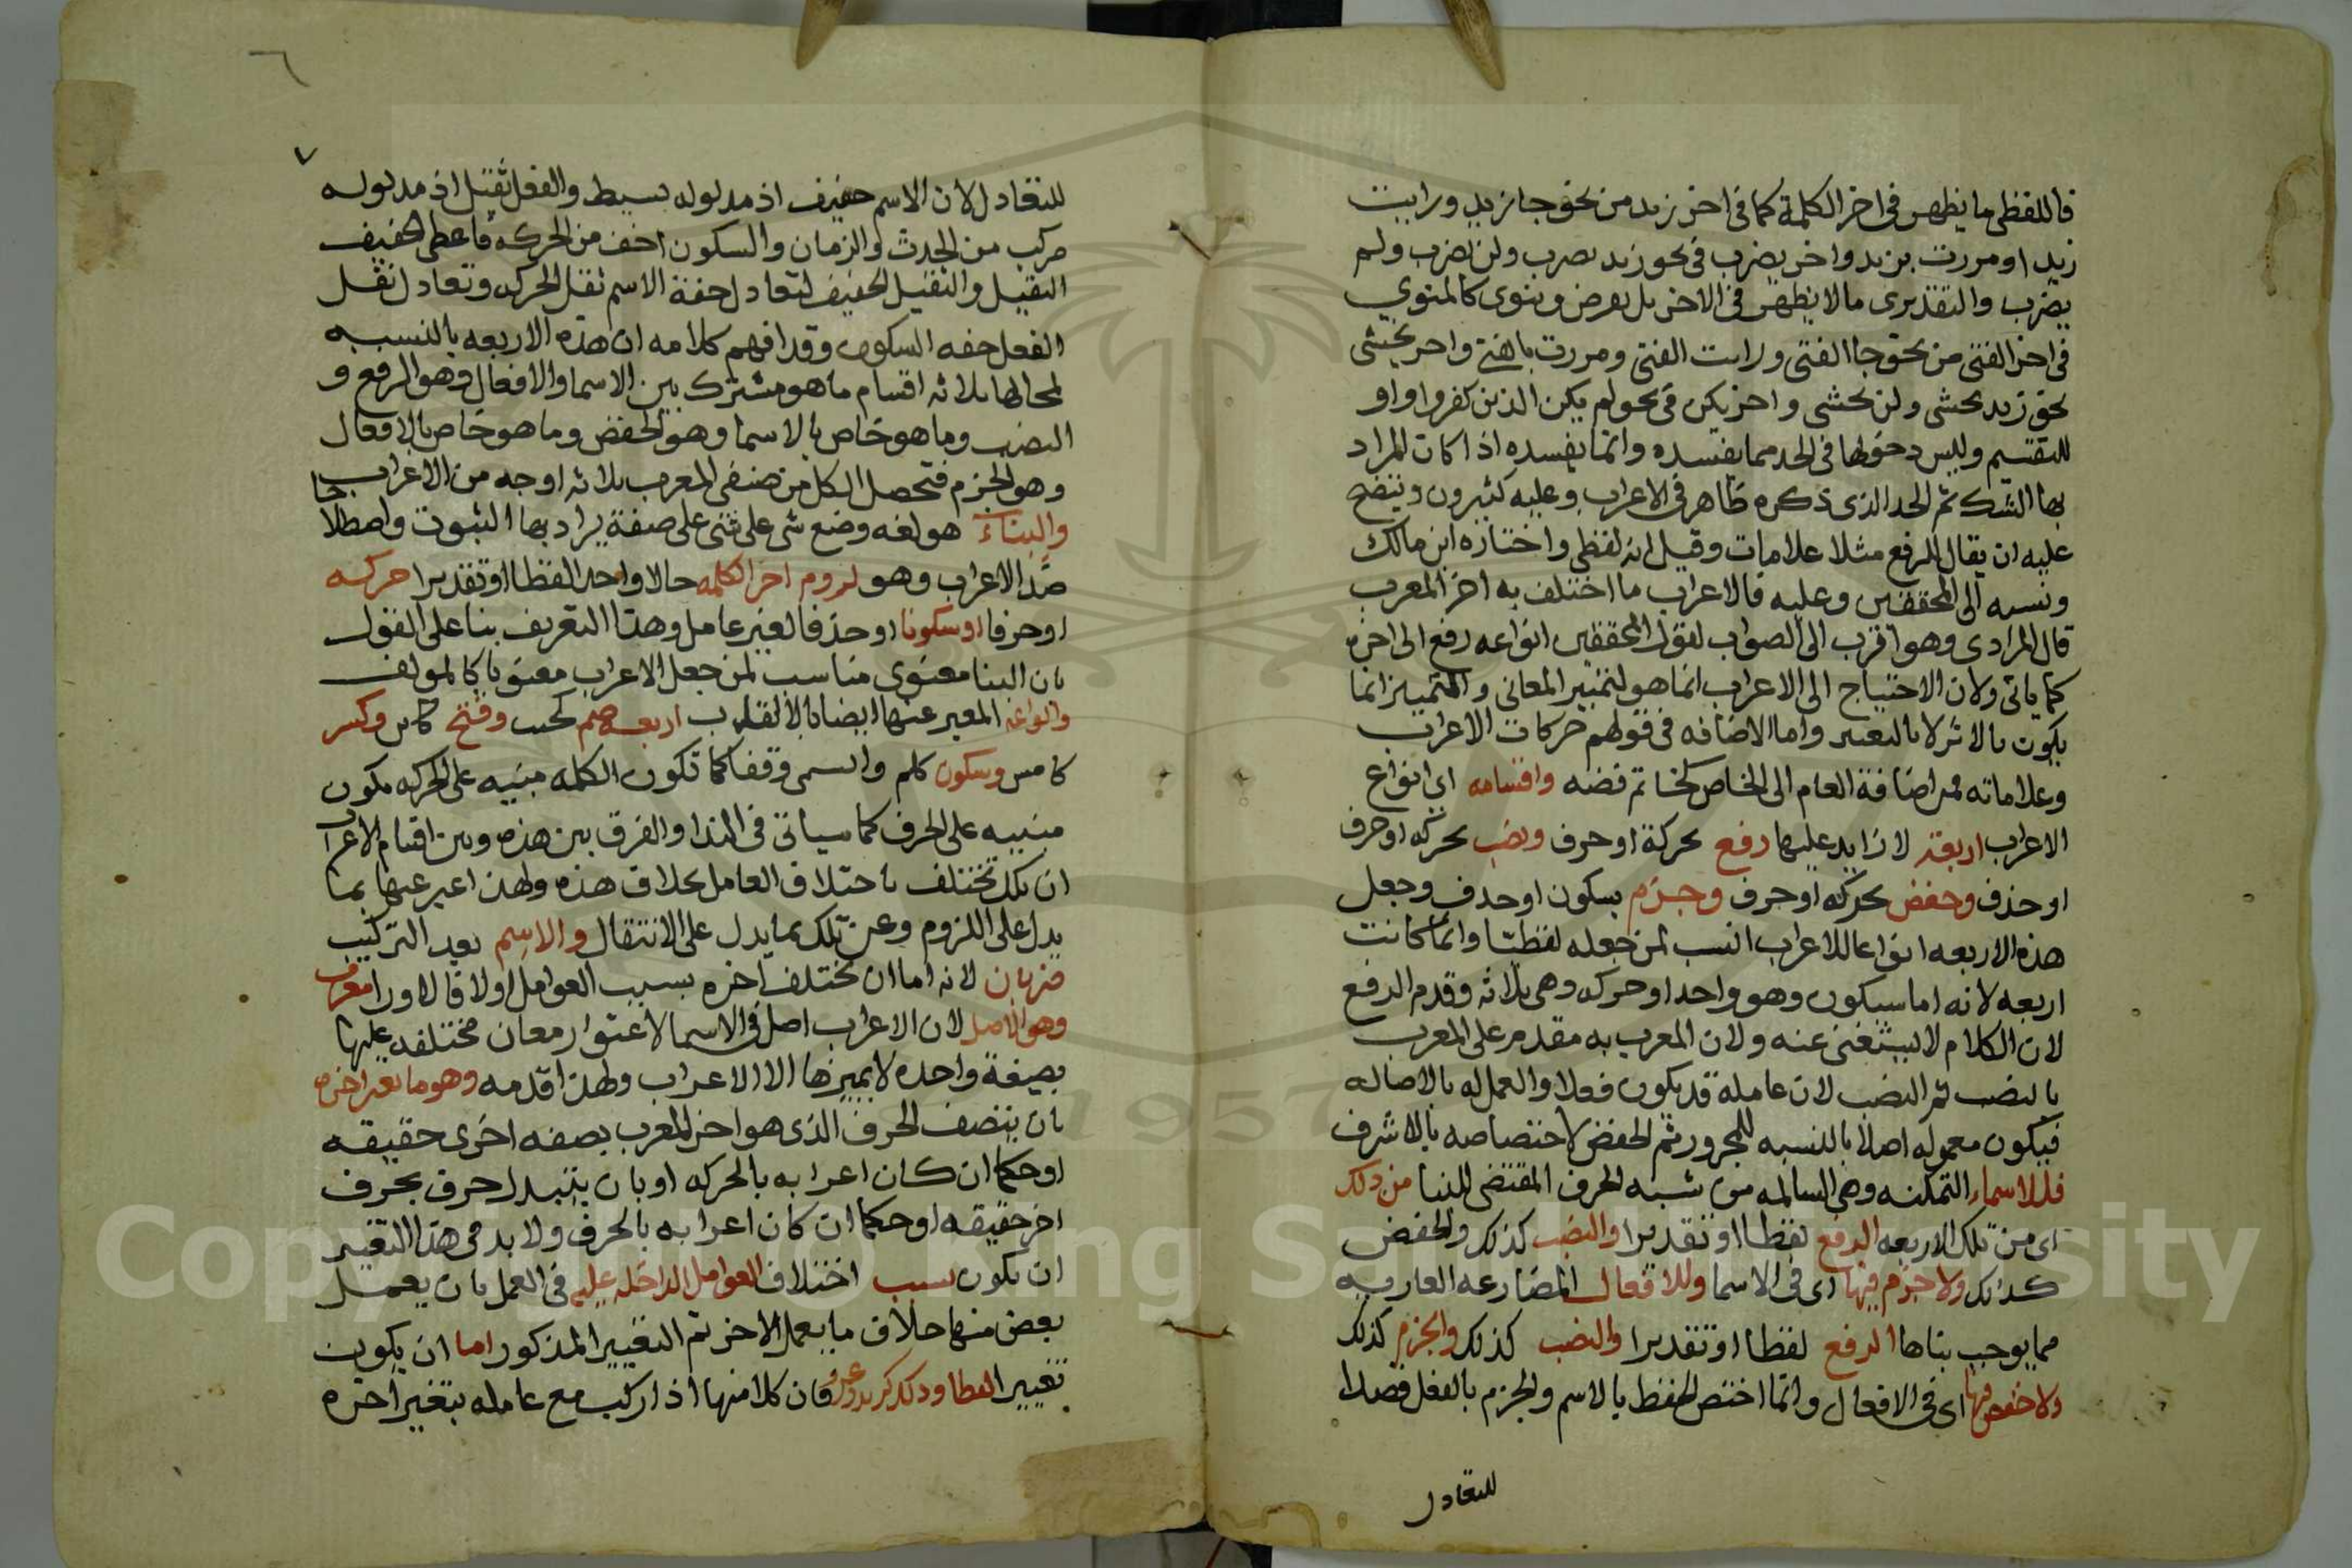 فاللفظي ما يظهر في اخر الكلمة كما في اخر زيد من نحو جا زيد ورايت
زيدا ومررت بزيد واخر يضرب في نحو زيد يضرب ولن يضرب ولم
يضرب والتقديري ما لا يظهر في الاخر بل يفرض وينوى كالمنوي
في اخر الفتى من نحو جا الفتى ورايت الفتى ومررت بالفتى واخر يخشى
نحو زيد يخشى ولن يخشى واخر يكن في نحو لم يكن الذين كفروا واو
للتقسيم وليس دخولها في الحد مما يفسده وانما يفسده اذا كان المراد
بها الشك ثم الحد الذي ذكره ظاهر في الاعراب وعليه كثيرون ويتضح
عليه ان يقال للرفع مثلا علامات وقيل انه لفظي واختاره ابن مالك
ونسبه الى المحققين وعليه فالاعراب ما اختلف به اخر المعرب
قال المرادي وهو اقرب الى الصواب لقول المحققين انواعه رفع الى اخره
كما ياتي ولان الاحتياج الى الاعراب انما هو لتمييز المعاني والتمييز انما
يكون بالاثر لا بالتغير واما الاضافه في قولهم حركات الاعراب
وعلاماته فمن اضافة العام الى الخاص كخاتم فضه واقسامه اي انواع
الاعراب اربعة لا زايد عليها رفع بحركة او حرف ونصب بحركه او حرف
او حذف وخفض بحركه او حرف وجزم بسكون او حذف وجعل
هذه الاربعه انواعا للاعراب انسب لمن جعله لفظيا وانما كانت
اربعه لانه اما سكون وهو واحد او حركه وهي ثلاثه وقدم الرفع
لان الكلام لا يستغنى عنه ولان المعرب به مقدم على المعرب
بالنصب ثم النصب لان عامله قد يكون فعلا والعمل له بالاصاله
فيكون معموله اصلا بالنسبه للمجرور ثم الخفض لاختصاصه بالاشرف
فللاسماء المتمكنه وهي السالمه من شبه الحرف المقتضي للبنا من ذلك
اي من تلك الاربعه الرفع لفظا او تقديرا والنصب كذلك والخفض
كذلك ولا جزم فيها اي في الاسما وللافعال المضارعه العاريه
مما يوجب بناها الرفع لفظا او تقديرا والنصب كذلك والجزم كذلك
ولا خفض فيها اي في الافعال وانما اختص الخفظ بالاسم والجزم بالفعل قصدا
للتعادل
٧
للتعادل لان الاسم خفيف اذ مدلوله بسيط والفعل ثقيل اذ مدلوله
مركب من الحدث والزمان والسكون اخف من الحركه فاعطي الخفيف
الثقيل والثقيل الخفيف لتعادل خفة الاسم ثقل الحركه وتعادل ثقل
الفعل خفه السكون وقد افهم كلامه ان هذه الاربعه بالنسبه
لمحالها ثلاثه اقسام ما هو مشترك بين الاسما والافعال وهو الرفع و
النصب وما هو خاص بالاسما وهو الخفض وما هو خاص بالافعال
وهو الجزم فتحصل لكل من صنفي المعرب ثلاثه اوجه من الاعراب
والبناء هو لغه وضع شي على شي على صفة يراد بها الثبوت واصطلاحا
ضد الاعراب وهو لزوم اخر الكلمه حالا واحدا لفظا او تقديرا حركه
او حرفا او سكونا او حذفا لغير عامل وهذا التعريف بنا على القول
بان البنا معنوي مناسب لمن جعل الاعراب معنويا كالمولف
وانواعه المعبر عنها ايضا بالالقاب اربعه ضم كحيث وفتح كاين وكسر
كامس وسكون كلم والسمى وقفا كما تكون الكلمه مبنيه على الحركه تكون
مبنيه على الحرف كما سياتي في الندا والفرق بين هذه وبين اقسام الاعراب
ان تلك تختلف باختلاف العامل بخلاف هذه ولهذا عبر عنها بما
يدل على اللزوم وعن تلك بما يدل على الانتقال والاسم بعد التركيب
ضربان لانه اما ان يختلف اخره بسبب العوامل او لا فالاول معرب
وهو الاصل لان الاعراب اصل في الاسما لاعتوار معان مختلفه عليها
بصيغة واحده لا يميزها الا الاعراب ولهذا قدمه وهو ما تغير اخره
بان يتصف الحرف الذي هو اخر المعرب بصفه اخرى حقيقه
او حكما ان كان اعرابه بالحركه او بان يتبدل حرف بحرف
اخر حقيقه او حكما ان كان اعرابه بالحرف ولا بد في هذا التغيير
ان يكون بسبب اختلاف العوامل الداخله عليه في العمل بان يعمل
بعض منها خلاف ما يعمل الاخر ثم التغيير المذكور اما ان يكون
تغييرا لفظا وذلك كزيد وعمرو فان كلا منها اذا ركب مع عامله يتغير اخره
Copyright © King Saud University
1957